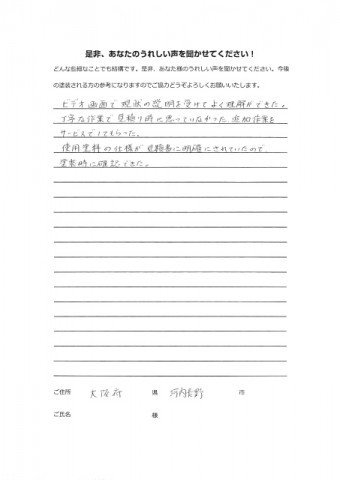 是非、あなたのうれしい声を聞かせてください！
どんな些細なことでも結構です。是非、あなた様のうれしい声を聞かせてください。今後
の塗装される方の参考になりますのでご協力どうぞよろしくお願いいたします。
ビデオ画面で現状の説明を受けてよく理解ができた。
丁寧な作業で見積り時に思っていなかった追加作業を
サービスでしてもらった。
使用塗料の仕様が見積書に明確にされていたので、
塗装時に確認できた。
ご住所 大阪府 県 河内長野 市
ご氏名 様